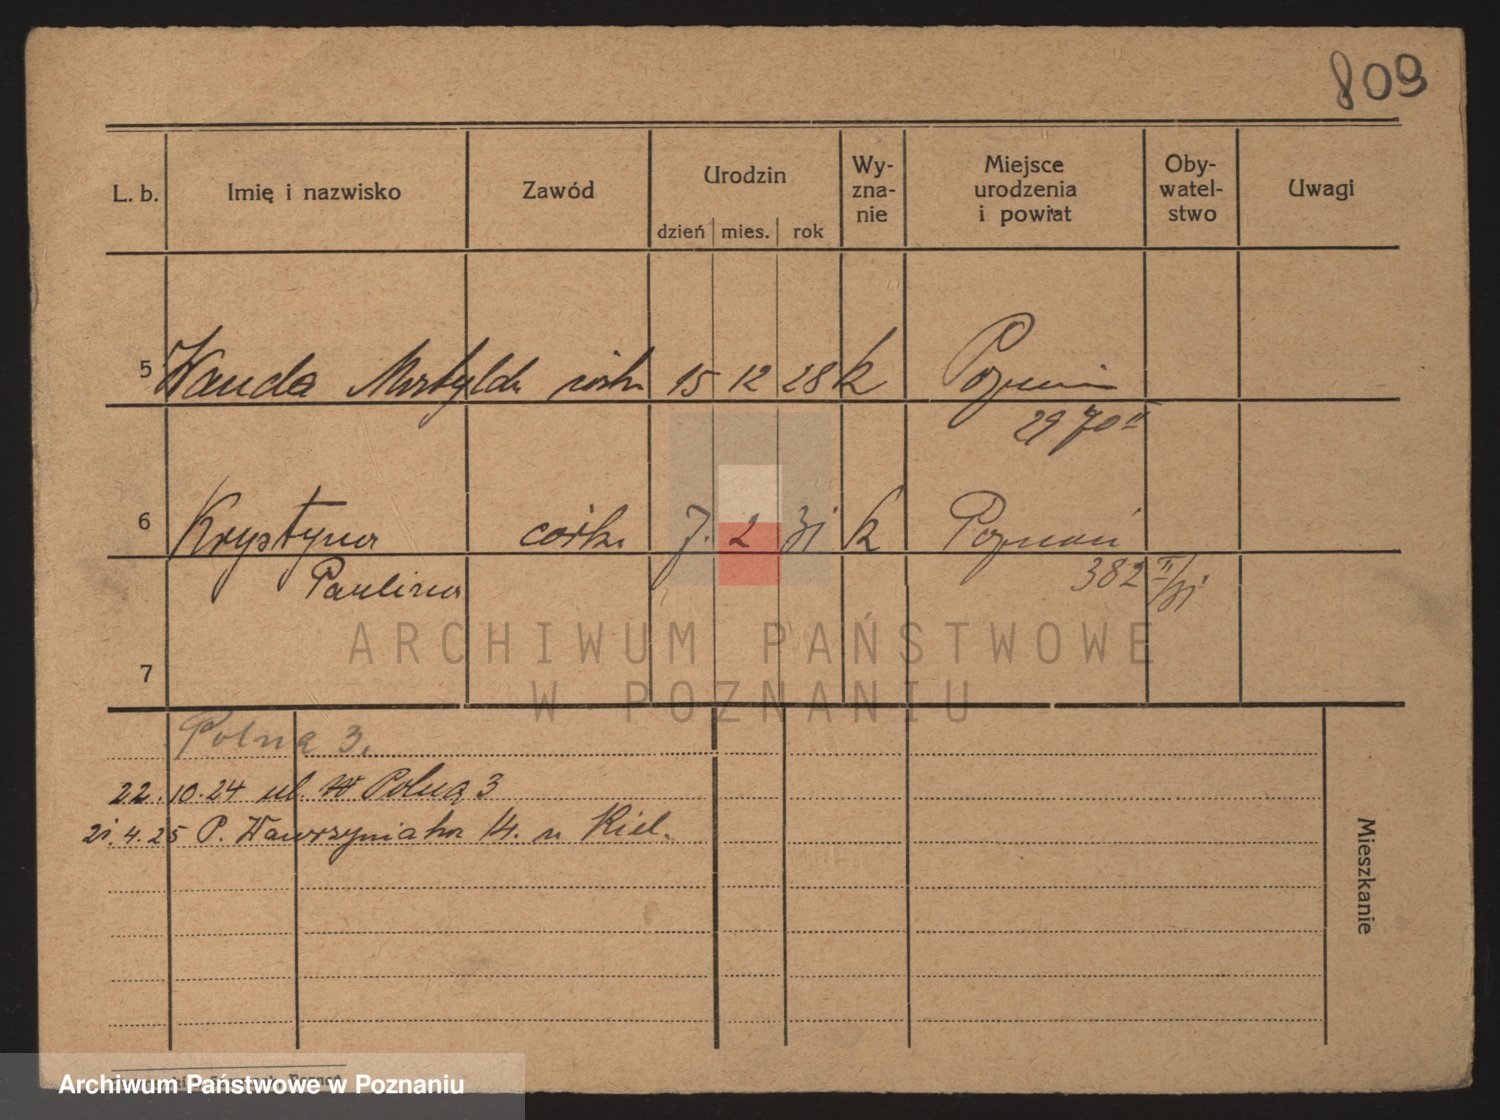 809
L. b. Imię i nazwisko Zawód Urodzin Wy-zna-nie Miejsce urodzenia i powiat Oby-watel-stwo Uwagi
dzień mies. rok
5 Wanda córka 15 12 28 k Poznań
29 70 II
6 Krystyna córka 7. 2 31 k Poznań
Paulina 382 II/31
7
ARCHIWUM PAŃSTWOWE
W POZNANIU
Polna 3.
22.10.24 ul. Polna 3
21.4.25 P. Wawrzyniaka 14. u Kiel.
Mieszkanie
Archiwum Państwowe w Poznaniu